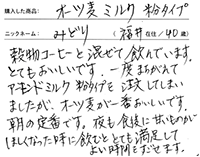 購入した商品： オーツ麦ミルク 粉タイプ
ニックネーム： みどり （福井在住/40歳）
穀物コーヒーと混ぜて飲んでいます。
とてもおいしいです。一度まちがえて
アーモンドミルク粉タイプを注文してしまい
ましたが、オーツ麦が一番おいしいです。
朝の定番です。夜も食後に甘いものが
ほしくなった時に飲むととても満足して
よい時間をすごせます。